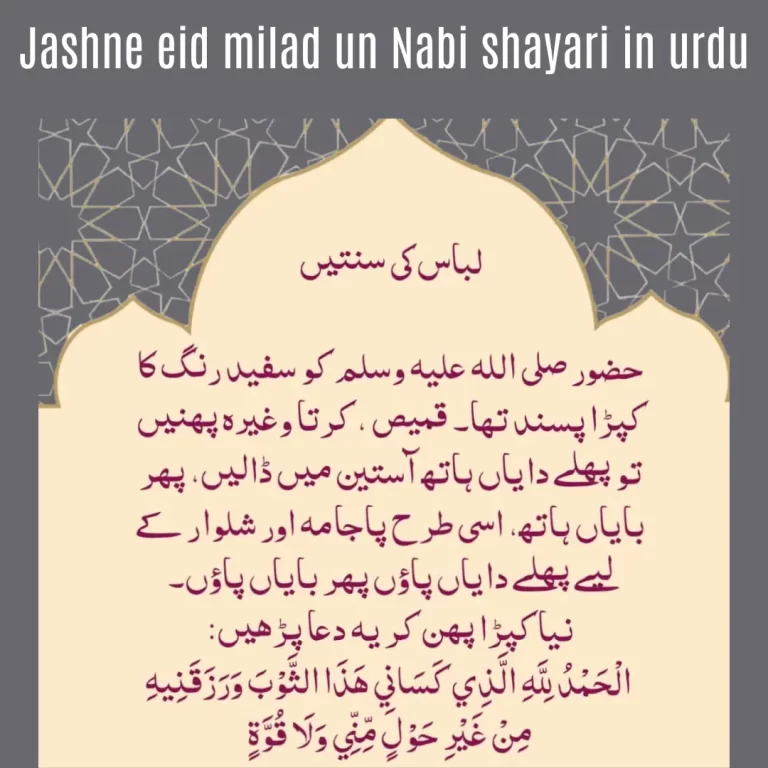 Jashne eid milad un Nabi shayari in urdu
لباس کی سنتیں
حضور صلی اللہ علیہ وسلم کو سفید رنگ کا
کپڑا پسند تھا۔ قمیص ، کرتا وغیرہ پہنیں
تو پہلے دایاں ہاتھ آستین میں ڈالیں، پھر
بایاں ہاتھ، اسی طرح پاجامہ اور شلوار کے
لیے پہلے دایاں پاؤں پھر بایاں پاؤں۔
نیا کپڑا پہن کر یہ دعا پڑھیں:
الْحَمْدُ لِلَّهِ الَّذِي كَسَانِي هَذَا الثَّوْبَ وَرَزَقَنِيهِ
مِنْ غَيْرِ حَوْلٍ مِّنِّي وَلَا قُوَّةٍ